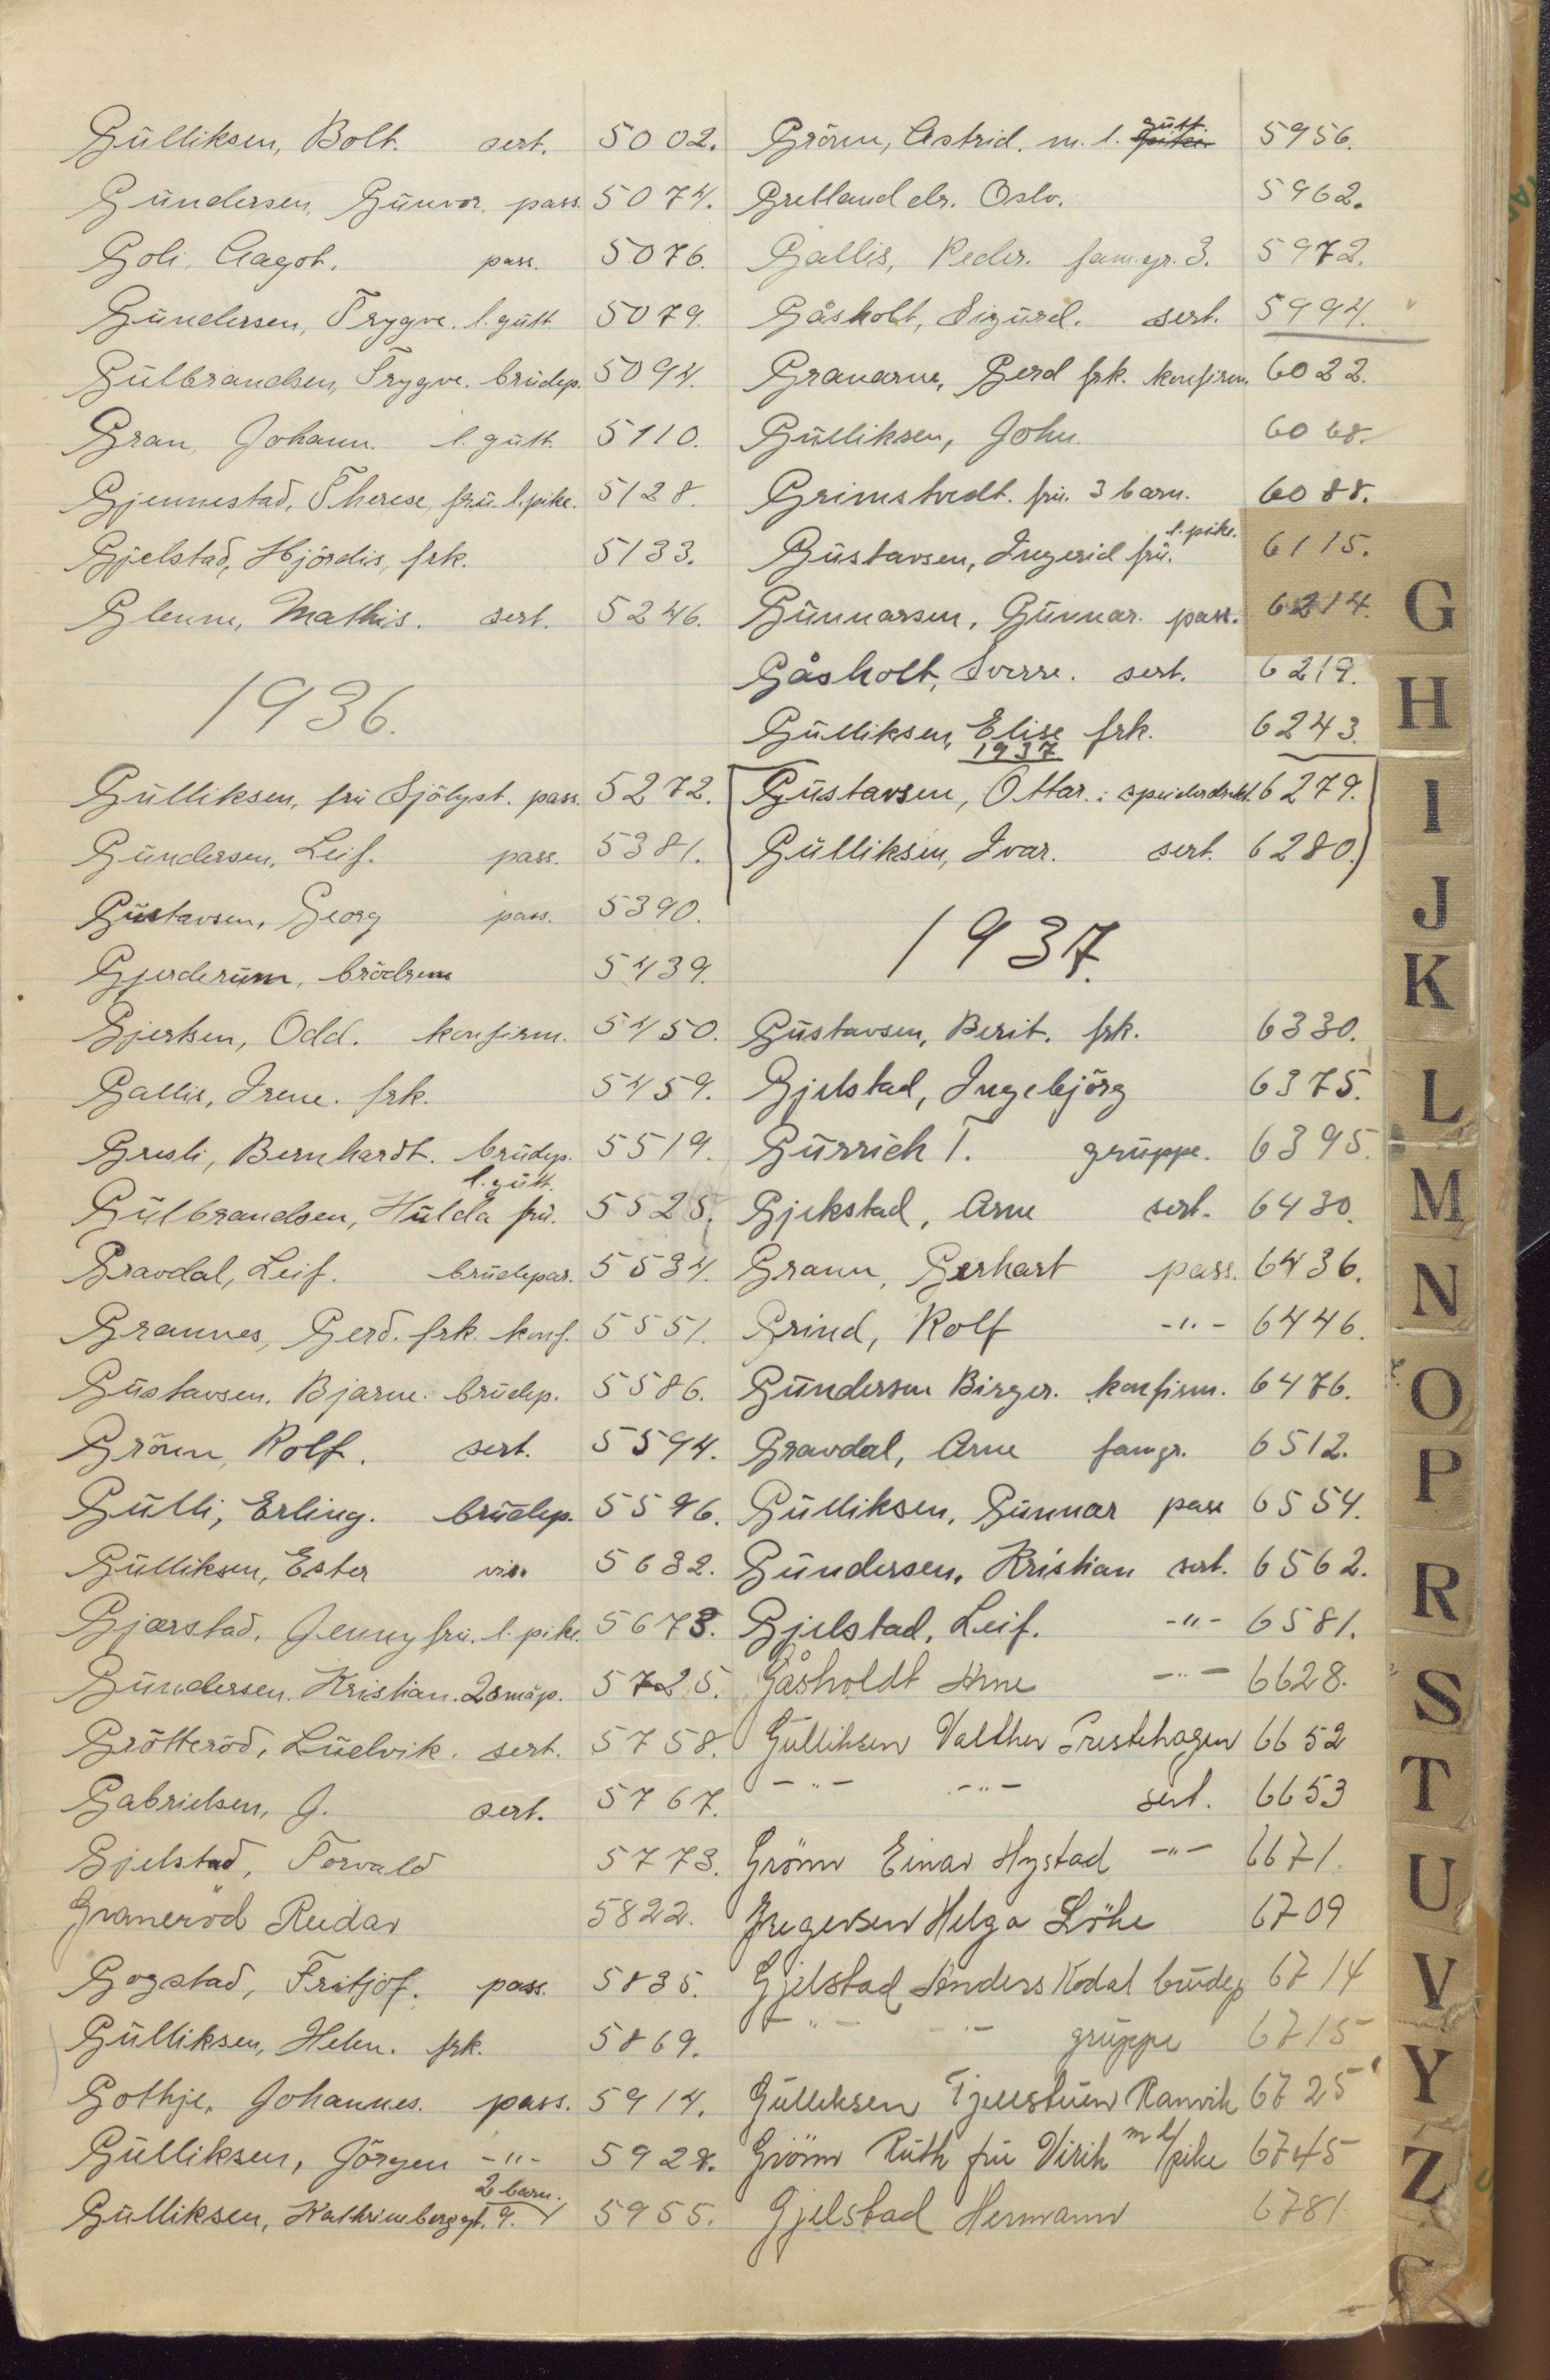 Gulliksen, Bolt. sert. 5002.
Gundersen, Gunvor. pass. 5074.
Goli, Aagot. pass. 5076.
Gundersen, Trygve. l. gutt 5079.
Gulbrandsen, Trygve. brudep. 5094.
Gran, Johann. l. gutt. 5110.
Gjennestad, Therese, fru. l. pike. 5128.
Gjelstad, Hjördis, frk. 5133.
Glenne, Mathis. sert. 5246.
1936.
Gulliksen, fru Sjölyst. pass. 5272.
Gundersen, Leif. pass. 5381.
Gustavsen, Georg pass. 5390.
Gjerderum, brödrene 5439.
Gjertsen, Odd. konfirm. 5450.
Gallis, Irene. frk. 5459.
Gresli, Bernhardt. brudep. 5519.
l. gutt.
Gulbrandsen, Hulda fru. 5525.
Gravdal, Leif. brudepar. 5534.
Grannes, Gerd. frk. konf. 5551.
Gustavsen, Bjarne. brudep. 5586.
Grönn, Rolf. sert. 5594.
Gulli, Erling. brudep. 5596.
Gulliksen, Ester vis. 5632.
Gjærstad, Jenny fru. l. pike. 5673.
Gundersen, Kristian. 2 småp. 5725.
Grötteröd, Ludvik. sert. 5758.
Gabrielsen, J. sert. 5767.
Gjelstad, Torvald 5773.
Graneröd Reidar 5822.
Gogstad, Fritjof. pass. 5835.
Gulliksen, Helen. frk. 5869.
Gothje, Johannes. pass. 5914.
Gulliksen, Jörgen -"- 5928.
2 barn.
Gulliksen, Kathrinebergsgt. 9. 5955.
gutt.
Grönn, Astrid. m. l. pike. 5956.
Grelland elr. Oslo. 5962.
Gallis, Peder. fam.gr. 3. 5972.
Gåsholt, Sigurd. sert. 5994.
Granarne, Gerd frk. konfirm. 6022.
Gulliksen, John. 6068.
Grimstvedt. fru. 3 barn. 6088.
l. pike.
Gustavsen, Ingerid fru. 6115.
Gunnarsen, Gunnar. pass. 6214.
Gåsholt, Sverre. sert. 6219.
Gulliksen, Elise frk. 6243.
1937
Gustavsen, Ottar. i speiderdrakt. 6279.
Gulliksen, Ivar. sert. 6280.
1937.
Gustavsen, Berit. frk. 6330.
Gjelstad, Ingebjörg 6375.
Gurrich T. gruppe. 6395.
Gjekstad, Arne sert. 6430.
Grann, Gerhart pass. 6436.
Grind, Rolf -"- 6446.
Gunderson Birger. konfirm. 6476.
Gravdal, Arne famgr. 6512.
Gulliksen, Gunnar pass 6554.
Gundersen, Kristian sert. 6562.
Gjelstad, Leif. -"- 6581.
Gåsholdt Arne -"- 6628.
Gulliksen Valther Prestehagen 6652
-"- -"- sert. 6653
Grönn Einar Hystad -"- 6671.
Gregersen Helga Löhe 6709
Gjelstad Anders Kodal brudep 6714
-"- -"- gruppe 6715
Gulliksen Fjellstuen Ranvik 6725
Grönn Ruth fru Virik m l/pike 6745
Gjelstad Hermann 6781
G
H
I
J
K
L
M
N
O
P
R
S
T
U
V
Y
Z